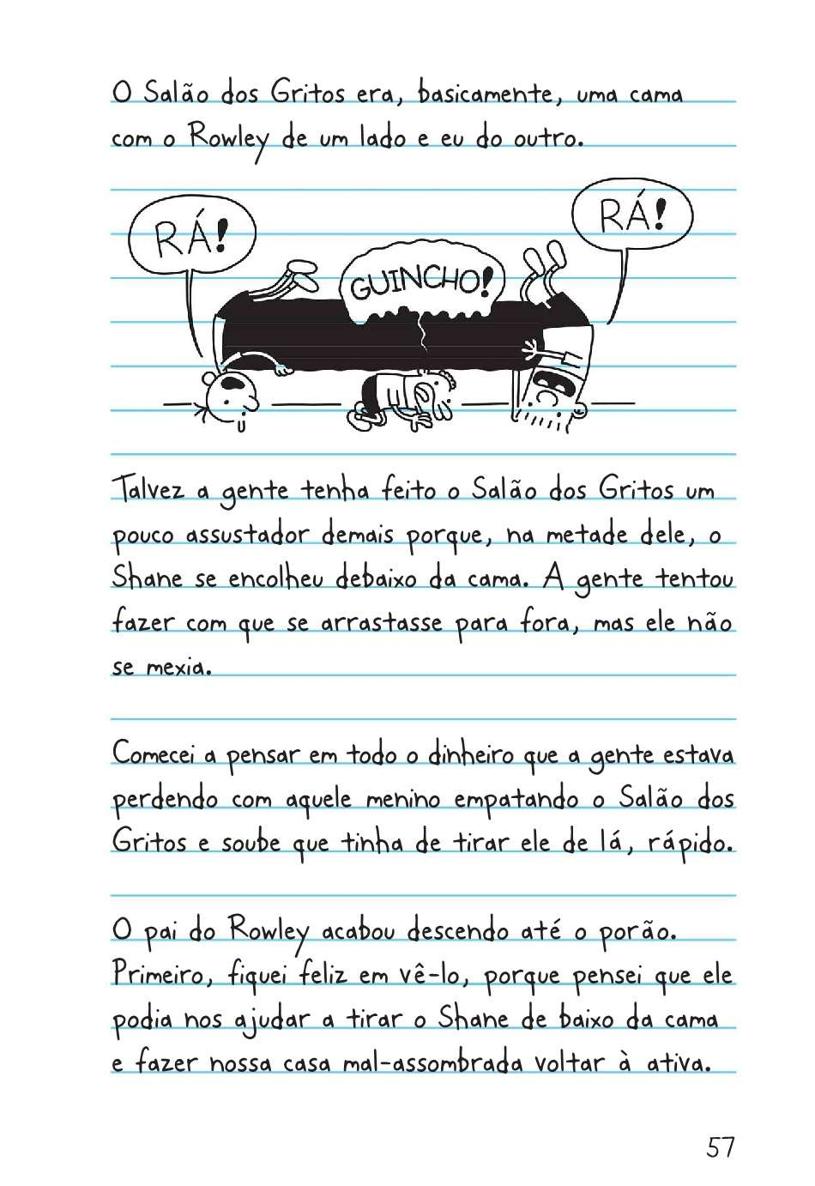 O Salão dos Gritos era, basicamente, uma cama
com o Rowley de um lado e eu do outro.
RÁ!
RÁ!
GUINCHO!
Talvez a gente tenha feito o Salão dos Gritos um
pouco assustador demais porque, na metade dele, o
Shane se encolheu debaixo da cama. A gente tentou
fazer com que se arrastasse para fora, mas ele não
se mexia.
Comecei a pensar em todo o dinheiro que a gente estava
perdendo com aquele menino empatando o Salão dos
Gritos e soube que tinha de tirar ele de lá, rápido.
O pai do Rowley acabou descendo até o porão.
Primeiro, fiquei feliz em vê-lo, porque pensei que ele
podia nos ajudar a tirar o Shane de baixo da cama
e fazer nossa casa mal-assombrada voltar à ativa.
57